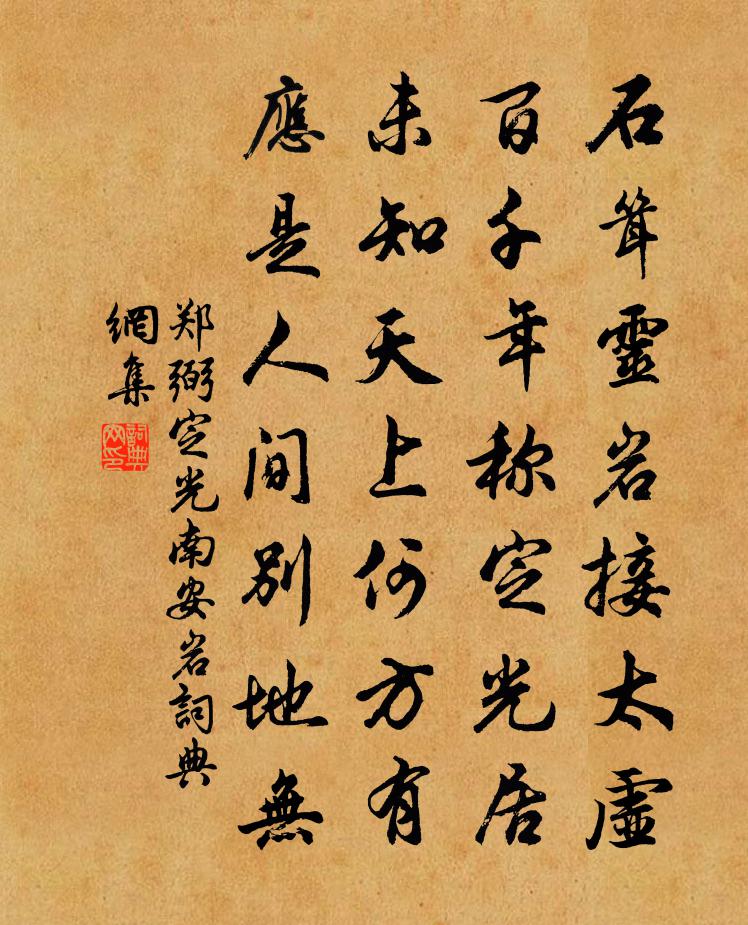 石耸靈岩接太虚
百千年称定光居
未知天上何方有
應是人间别地無
郑弼定光南安岩詞典
網集
詞典
网印